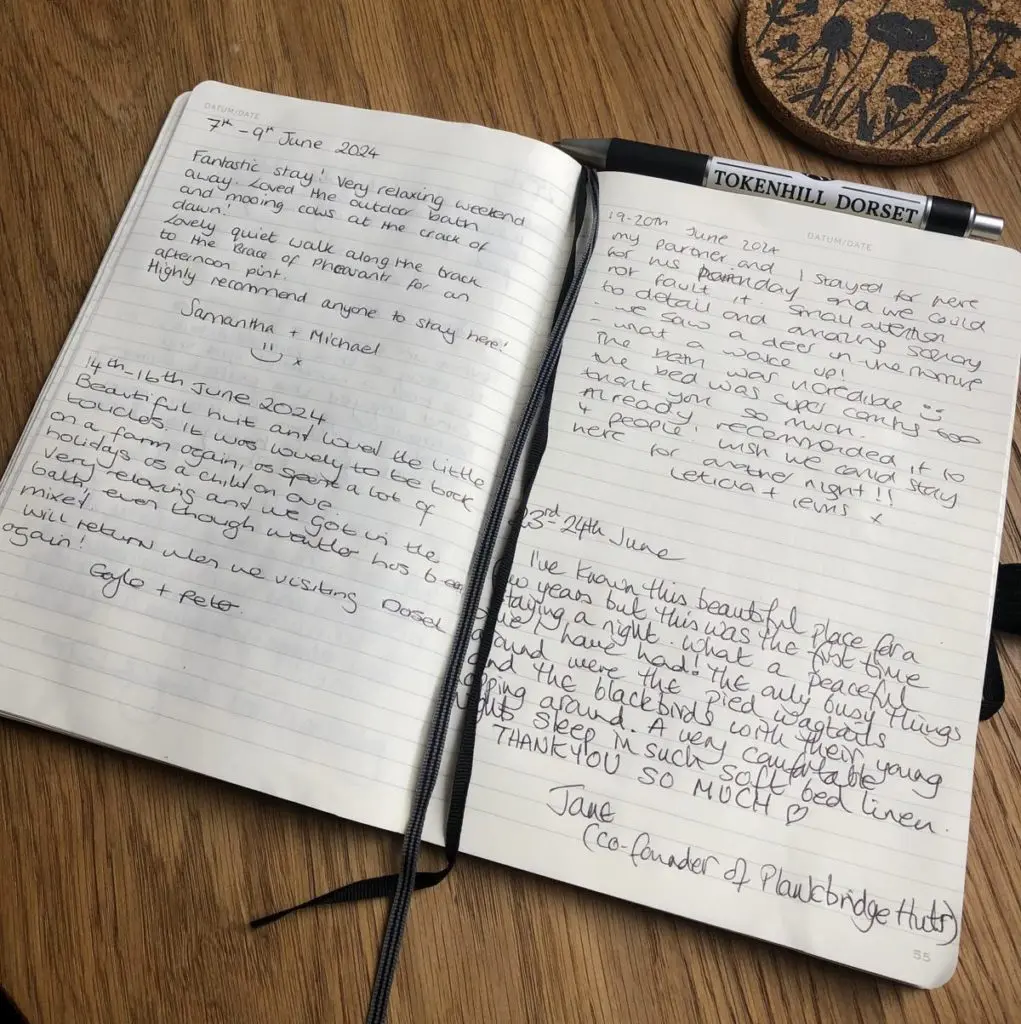 DATUM/DATE
7th - 9th June 2024
Fantastic stay! Very relaxing weekend
away. Loved the outdoor bath
and mooing cows at the crack of
dawn!
Lovely quiet walk along the track
to the Brace of Pheasants for an
afternoon pint.
Highly recommend anyone to stay here!
Samantha + Michael
x
14th-16th June 2024
Beautiful hut and loved the little
touches. It was lovely to be back
on a farm again, as spent a lot of
holidays as a child on one.
Very relaxing and we got in the
bath, even though weather has been
mixed!
Will return when we visiting Dorset
again!
Gayle + Peter
TOKENHILL DORSET
DATUM/DATE
19-20th June 2024
my partner and I stayed for here
for his birthday and we could
not fault it. Small attention
to detail and amazing scenery
- we saw a deer in the morning
- what a wake up!
The bath was incredible
the bed was super comfy too
thank you so much.
Already recommended it to
4 people, wish we could stay
here for another night!!
Leticia + Lewis x
23rd-24th June
I've known this beautiful place for a
few years but this was the first time
staying a night. What a peaceful
time I have had! The only busy things
around were the Pied wagtails
and the blackbirds with their young
hopping around. A very comfortable
nights sleep in such soft bed linen.
THANKYOU SO MUCH ♡
Jane
(co-founder of Plankbridge Huts)
55